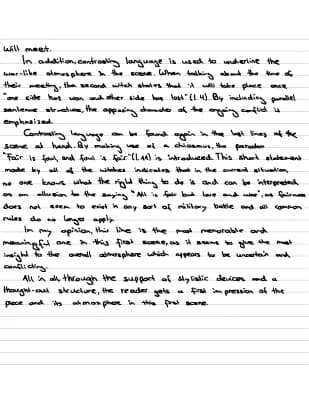 will meet.
In addition, contrasting language is used to underline the
war-like atmosphere in the scene. When talking about the time of
their meeting, the second witch states that it will take place once
"one side has won and other side has lost" (l. 4). By including parallel
sentence structure, the opposing character of the ongoing conflict is
emphasized.
Contrasting language can be found again in the last lines of the
scene at hand. By making use of a chiasmus, the paradox
"Fair is foul, and foul is fair" (l. 11) is introduced. This short statement
made by all of the witches indicates that in the current situation,
no one knows what the right thing to do is and can be interpreted
as an allusion to the saying "All is fair but love and war", as fairness
does not seem to exist in any sort of military battle and all common
rules do no longer apply.
In my opinion, this line is the most memorable and
meaningful one in this first scene, as it seems to give the most
insight to the overall atmosphere which appears to be uncertain and
conflicting.
All in all, through the support of stylistic devices and a
thought-out structure, the reader gets a first impression of the
piece and its atmosphere in this first scene.